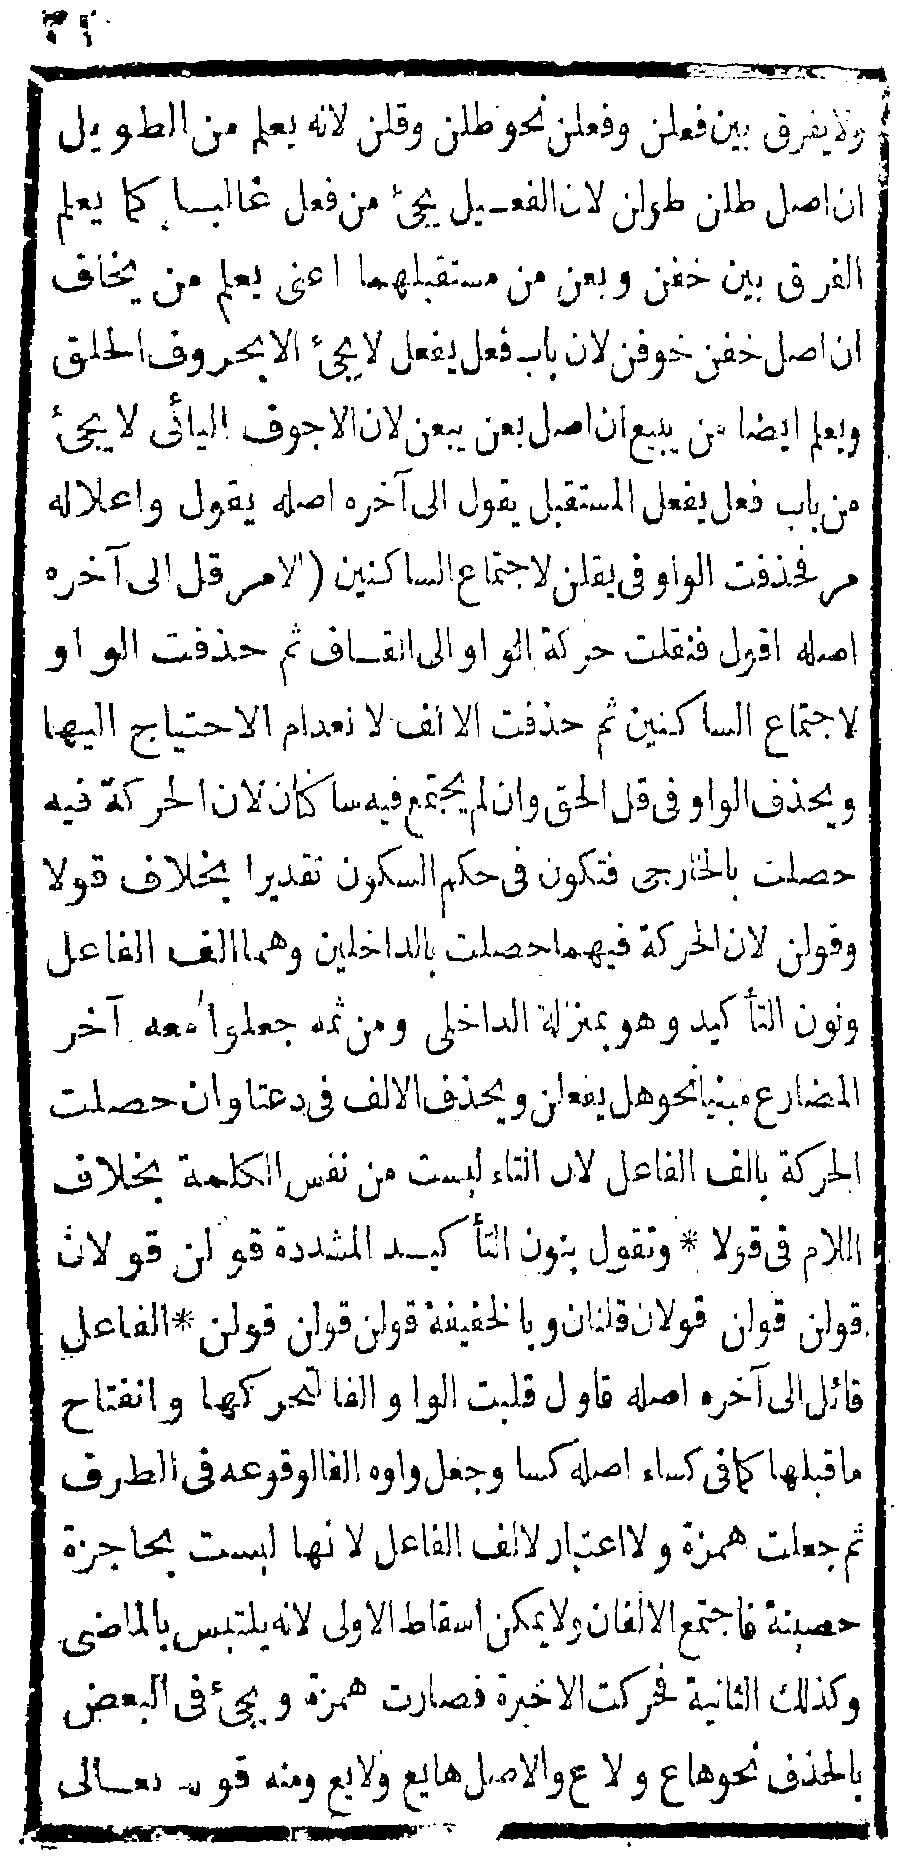 ولا يفرق بين فعلن وفعلن نحو طلن وقلن لانه يعلم من الطويل
ان اصل طلن طولن لان الفعيل يجئ من فعل غالبا كما يعلم
الفرق بين خفن وبعن من مستقبلهما اعنى يعلم من يخاف
ان اصل خفن خوفن لان باب فعل يفعل لا يجئ الا بحروف الحلق
ويعلم ايضا من يبيع ان اصل بعن بيعن لان الاجوف اليائى لا يجئ
من باب فعل يفعل المستقبل يقول الى آخره اصله يقول واعلاله
مر فحذفت الواو فى يقلن لاجتماع الساكنين (الامر قل الى آخره
اصله اقول فنقلت حركة الواو الى القاف ثم حذفت الواو
لاجتماع الساكنين ثم حذفت الالف لانعدام الاحتياج اليها
ويحذف الواو فى قل الحق وان لم يجتمع فيه ساكنان لان الحركة فيه
حصلت بالخارجى فتكون فى حكم السكون تقديرا بخلاف قولا
وقولن لان الحركة فيهما حصلت بالداخلين وهما الف الفاعل
ونون التأكيد وهو بمنزلة الداخلى ومن ثمه جعلوا معه آخر
المضارع مبنيا نحو هل يفعلن ويحذف الالف فى دعتا وان حصلت
الحركة بالف الفاعل لان التاء ليست من نفس الكلمة بخلاف
اللام فى قولا * وتقول بنون التأكيد المشددة قولن قولان
قولن قولن قولان قلنان وبالخفيفة قولن قولن قولن * الفاعل
قائل الى آخره اصله قاول قلبت الواو الفا لتحركها وانفتاح
ما قبلها كما فى كساء اصله كسا وجعل واوه الفا لوقوعه فى الطرف
ثم جعلت همزة ولا اعتبار لالف الفاعل لانها ليست بحاجزة
حصينة فاجتمع الالفان ولا يمكن اسقاط الاولى لانه يلتبس بالماضى
وكذلك الثانية فحركت الاخيرة فصارت همزة ويجئ فى البعض
بالحذف نحو هاع ولاع والاصل هايع ولايع ومنه قوله تعالى